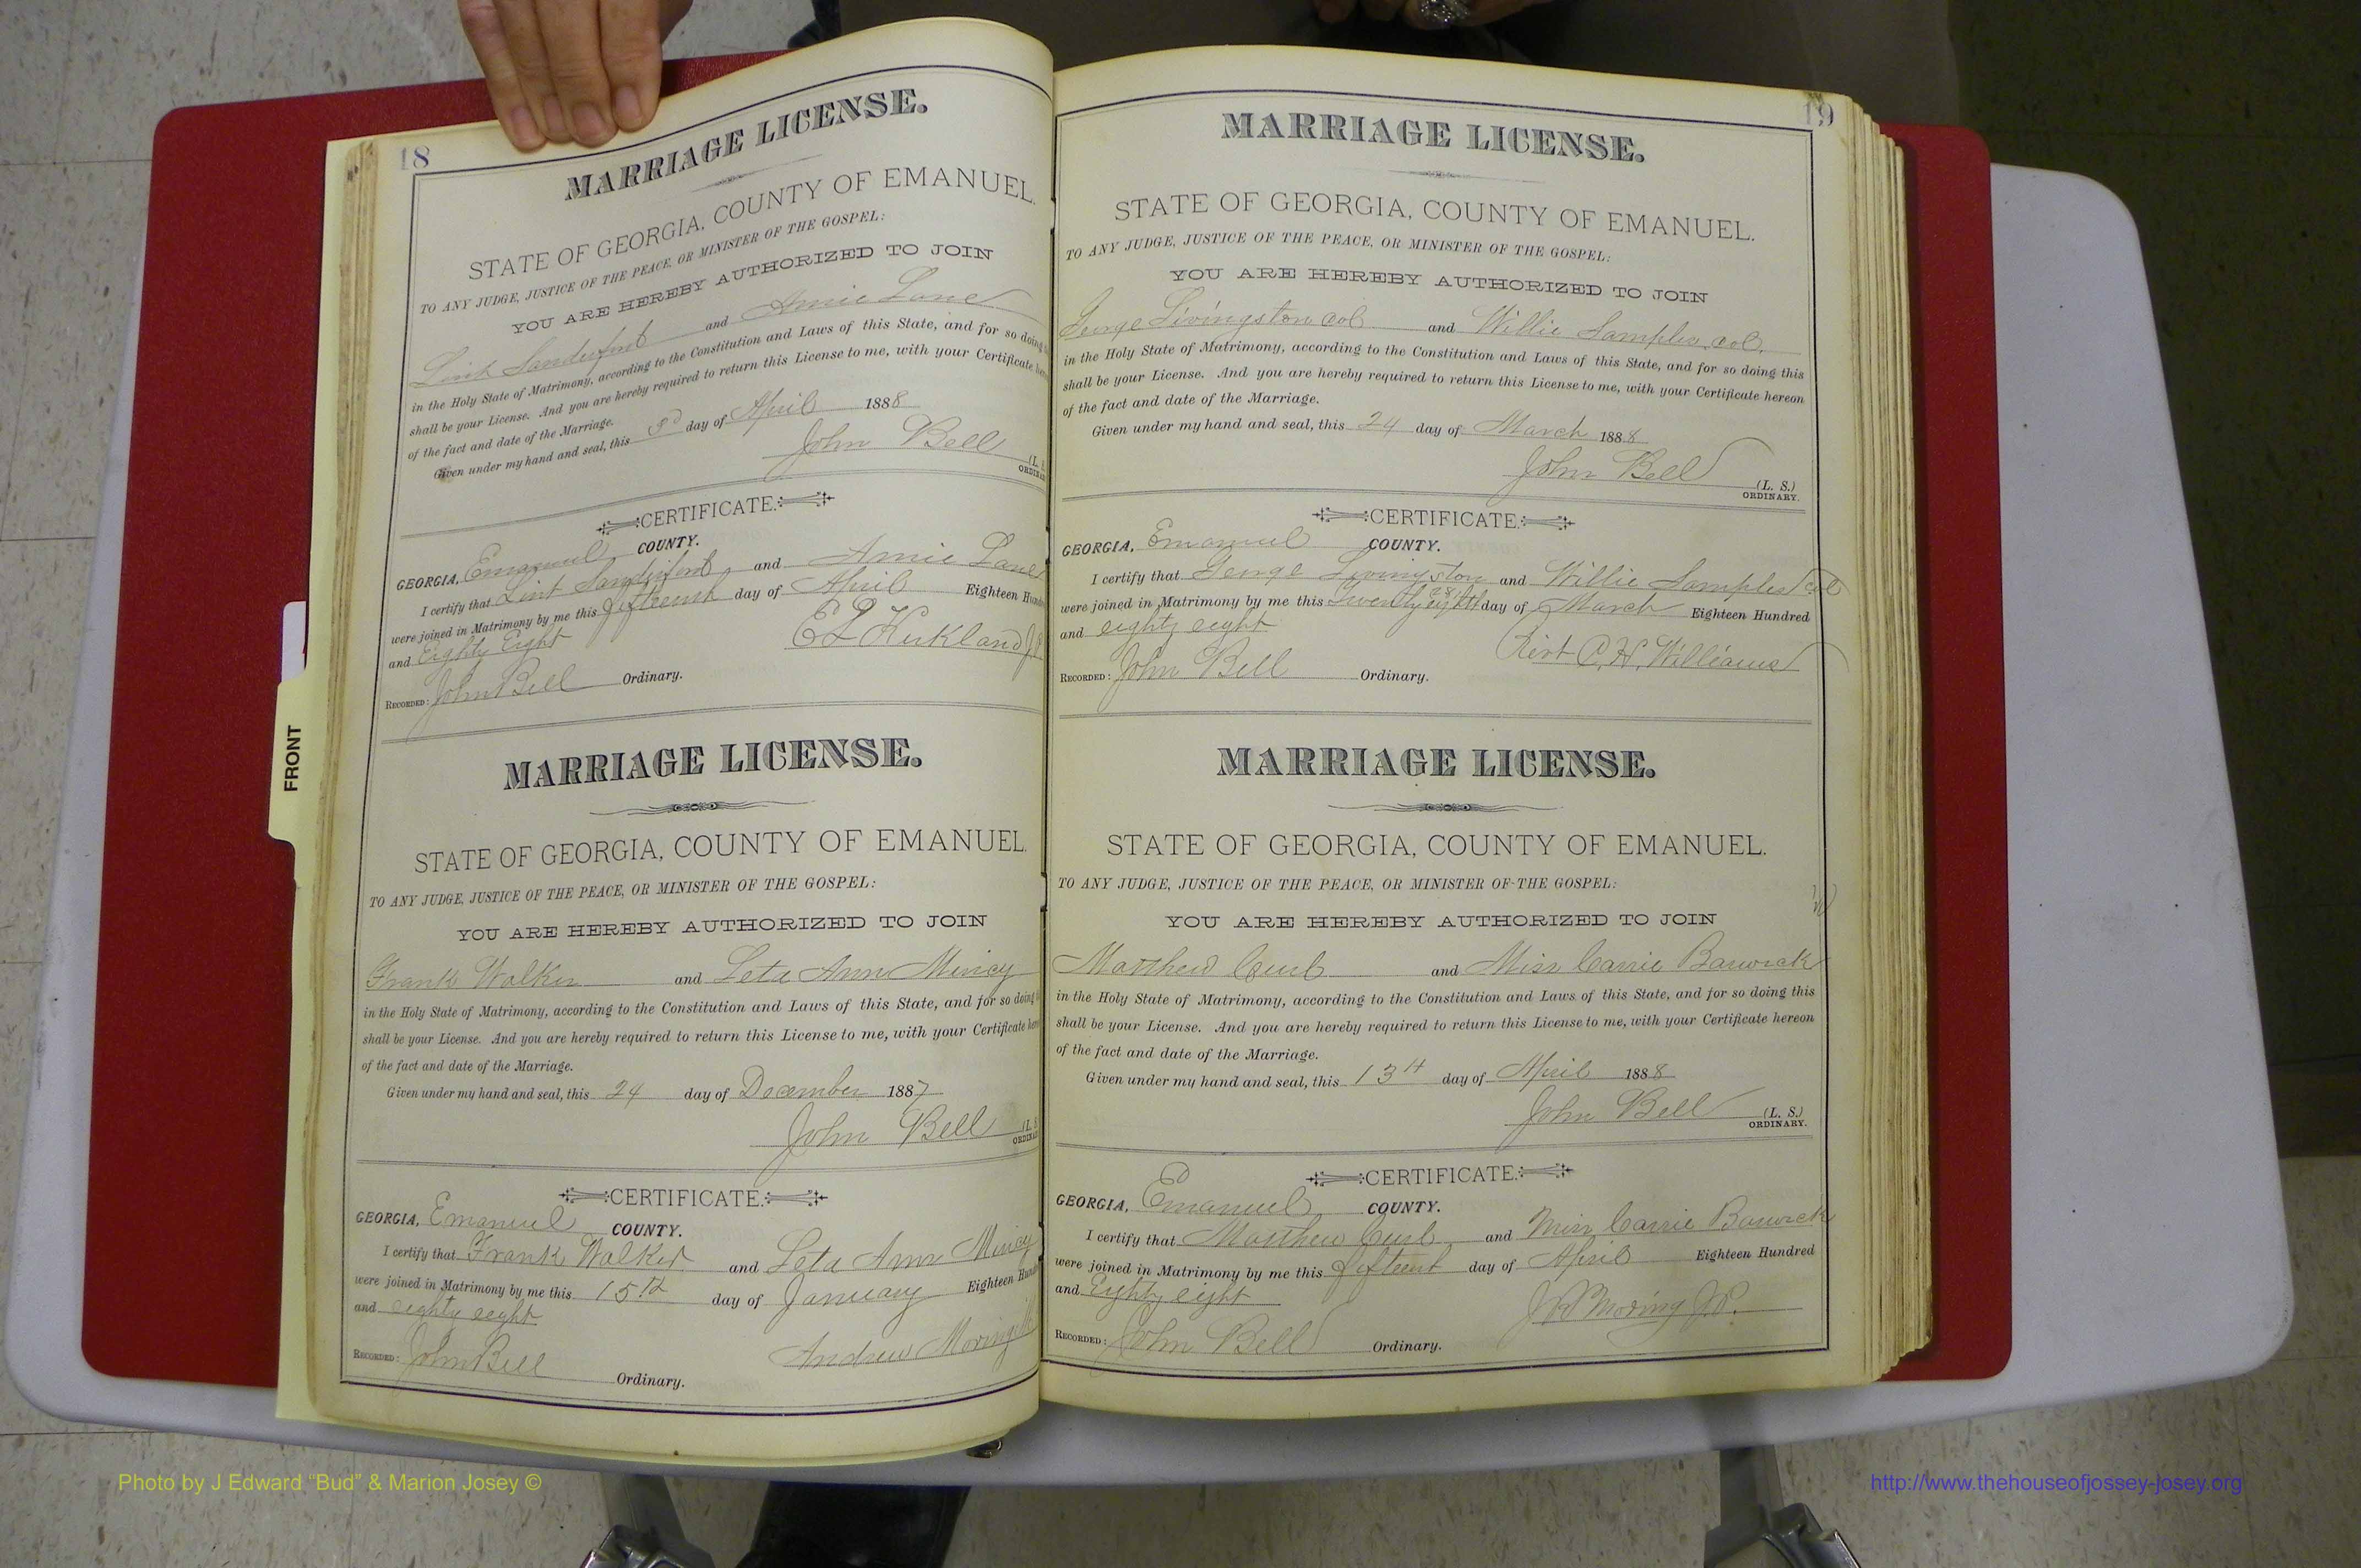 18
MARRIAGE LICENSE.
STATE OF GEORGIA, COUNTY OF EMANUEL.
TO ANY JUDGE, JUSTICE OF THE PEACE, OR MINISTER OF THE GOSPEL:
YOU ARE HEREBY AUTHORIZED TO JOIN
Link Sanderford and Amie Lane
in the Holy State of Matrimony, according to the Constitution and Laws of this State, and for so doing
shall be your License. And you are hereby required to return this License to me, with your Certificate
of the fact and date of the Marriage.
Given under my hand and seal, this 3d day of April 1888
John Bell (L.
ORDINA
CERTIFICATE.
GEORGIA, Emanuel COUNTY.
I certify that Link Sanderford and Amie Lane
were joined in Matrimony by me this fifteenth day of April Eighteen Hund
and Eighty Eight
E L Kirkland J.P.
RECORDED: John Bell Ordinary.
MARRIAGE LICENSE.
STATE OF GEORGIA, COUNTY OF EMANUEL.
TO ANY JUDGE, JUSTICE OF THE PEACE, OR MINISTER OF THE GOSPEL:
YOU ARE HEREBY AUTHORIZED TO JOIN
Frank Walker and Leta Ann Mincy
in the Holy State of Matrimony, according to the Constitution and Laws of this State, and for so doing
shall be your License. And you are hereby required to return this License to me, with your Certificate
of the fact and date of the Marriage.
Given under my hand and seal, this 24 day of December 1887
John Bell (L. S
ORDINA
CERTIFICATE.
GEORGIA, Emanuel COUNTY.
I certify that Frank Walker and Leta Ann Mincy
were joined in Matrimony by me this 15th day of January Eighteen Hund
and eighty eight
Andrew Moring
RECORDED: John Bell Ordinary.
19
MARRIAGE LICENSE.
STATE OF GEORGIA, COUNTY OF EMANUEL.
TO ANY JUDGE, JUSTICE OF THE PEACE, OR MINISTER OF THE GOSPEL:
YOU ARE HEREBY AUTHORIZED TO JOIN
George Livingston col and Willie Samples col.
in the Holy State of Matrimony, according to the Constitution and Laws of this State, and for so doing this
shall be your License. And you are hereby required to return this License to me, with your Certificate hereon
of the fact and date of the Marriage.
Given under my hand and seal, this 24 day of March 1888
John Bell (L. S.)
ORDINARY.
CERTIFICATE.
GEORGIA, Emanuel COUNTY.
I certify that George Livingston and Willie Samples col
were joined in Matrimony by me this Twenty eighth day of March Eighteen Hundred
and eighty eight
C. H. Williams
RECORDED: John Bell Ordinary.
MARRIAGE LICENSE.
STATE OF GEORGIA, COUNTY OF EMANUEL.
TO ANY JUDGE, JUSTICE OF THE PEACE, OR MINISTER OF THE GOSPEL:
YOU ARE HEREBY AUTHORIZED TO JOIN
Matthew Curl and Miss Carrie Barwick
in the Holy State of Matrimony, according to the Constitution and Laws of this State, and for so doing this
shall be your License. And you are hereby required to return this License to me, with your Certificate hereon
of the fact and date of the Marriage.
Given under my hand and seal, this 13th day of April 1888
John Bell (L. S.)
ORDINARY.
CERTIFICATE.
GEORGIA, Emanuel COUNTY.
I certify that Matthew Curl and Miss Carrie Barwick
were joined in Matrimony by me this fifteent day of April Eighteen Hundred
and Eighty eight
J R Moring J.P.
RECORDED: John Bell Ordinary.
FRONT
Photo by J Edward “Bud” & Marion Josey ©
http://www.thehouseofjossey-josey.org